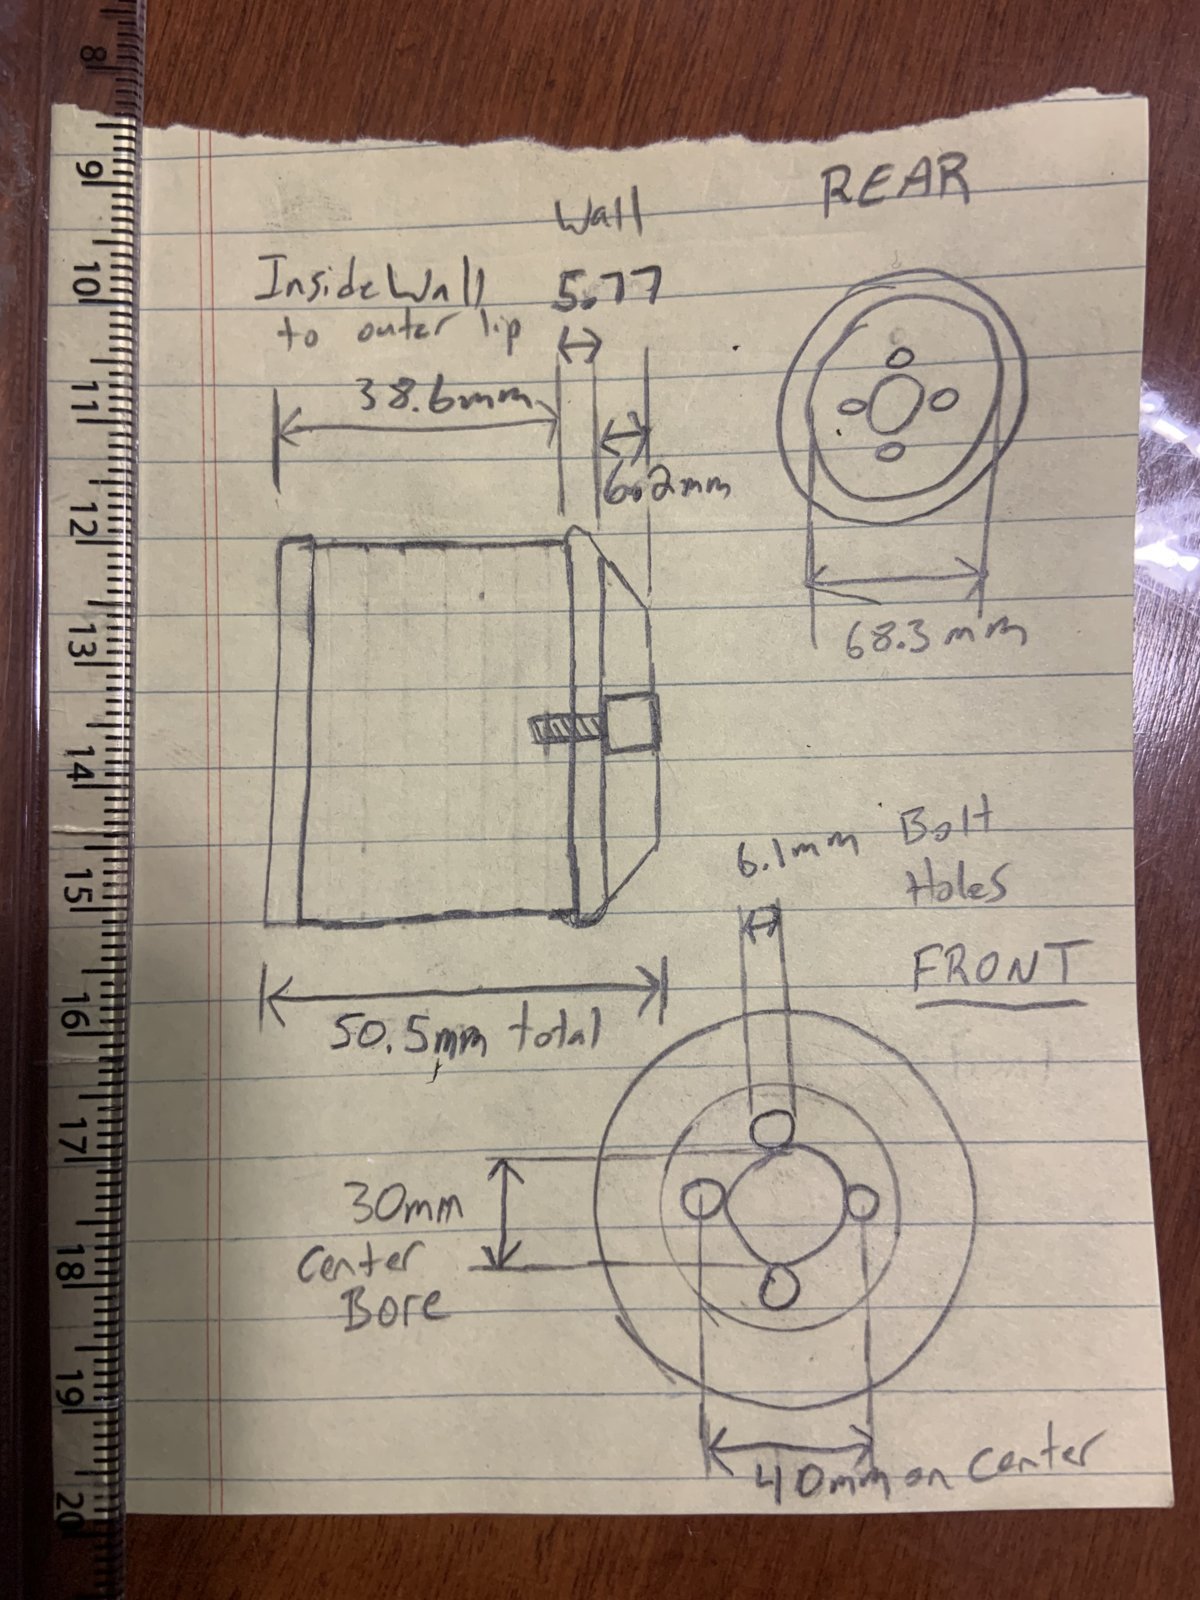 8
9
10
11
12
13
14
15
16
17
18
19
20
REAR
Wall
5.77
Inside Wall
to outer lip
38.6mm
6.2mm
68.3mm
6.1mm Bolt
Holes
FRONT
50.5mm total
30mm
Center
Bore
40mm on Center